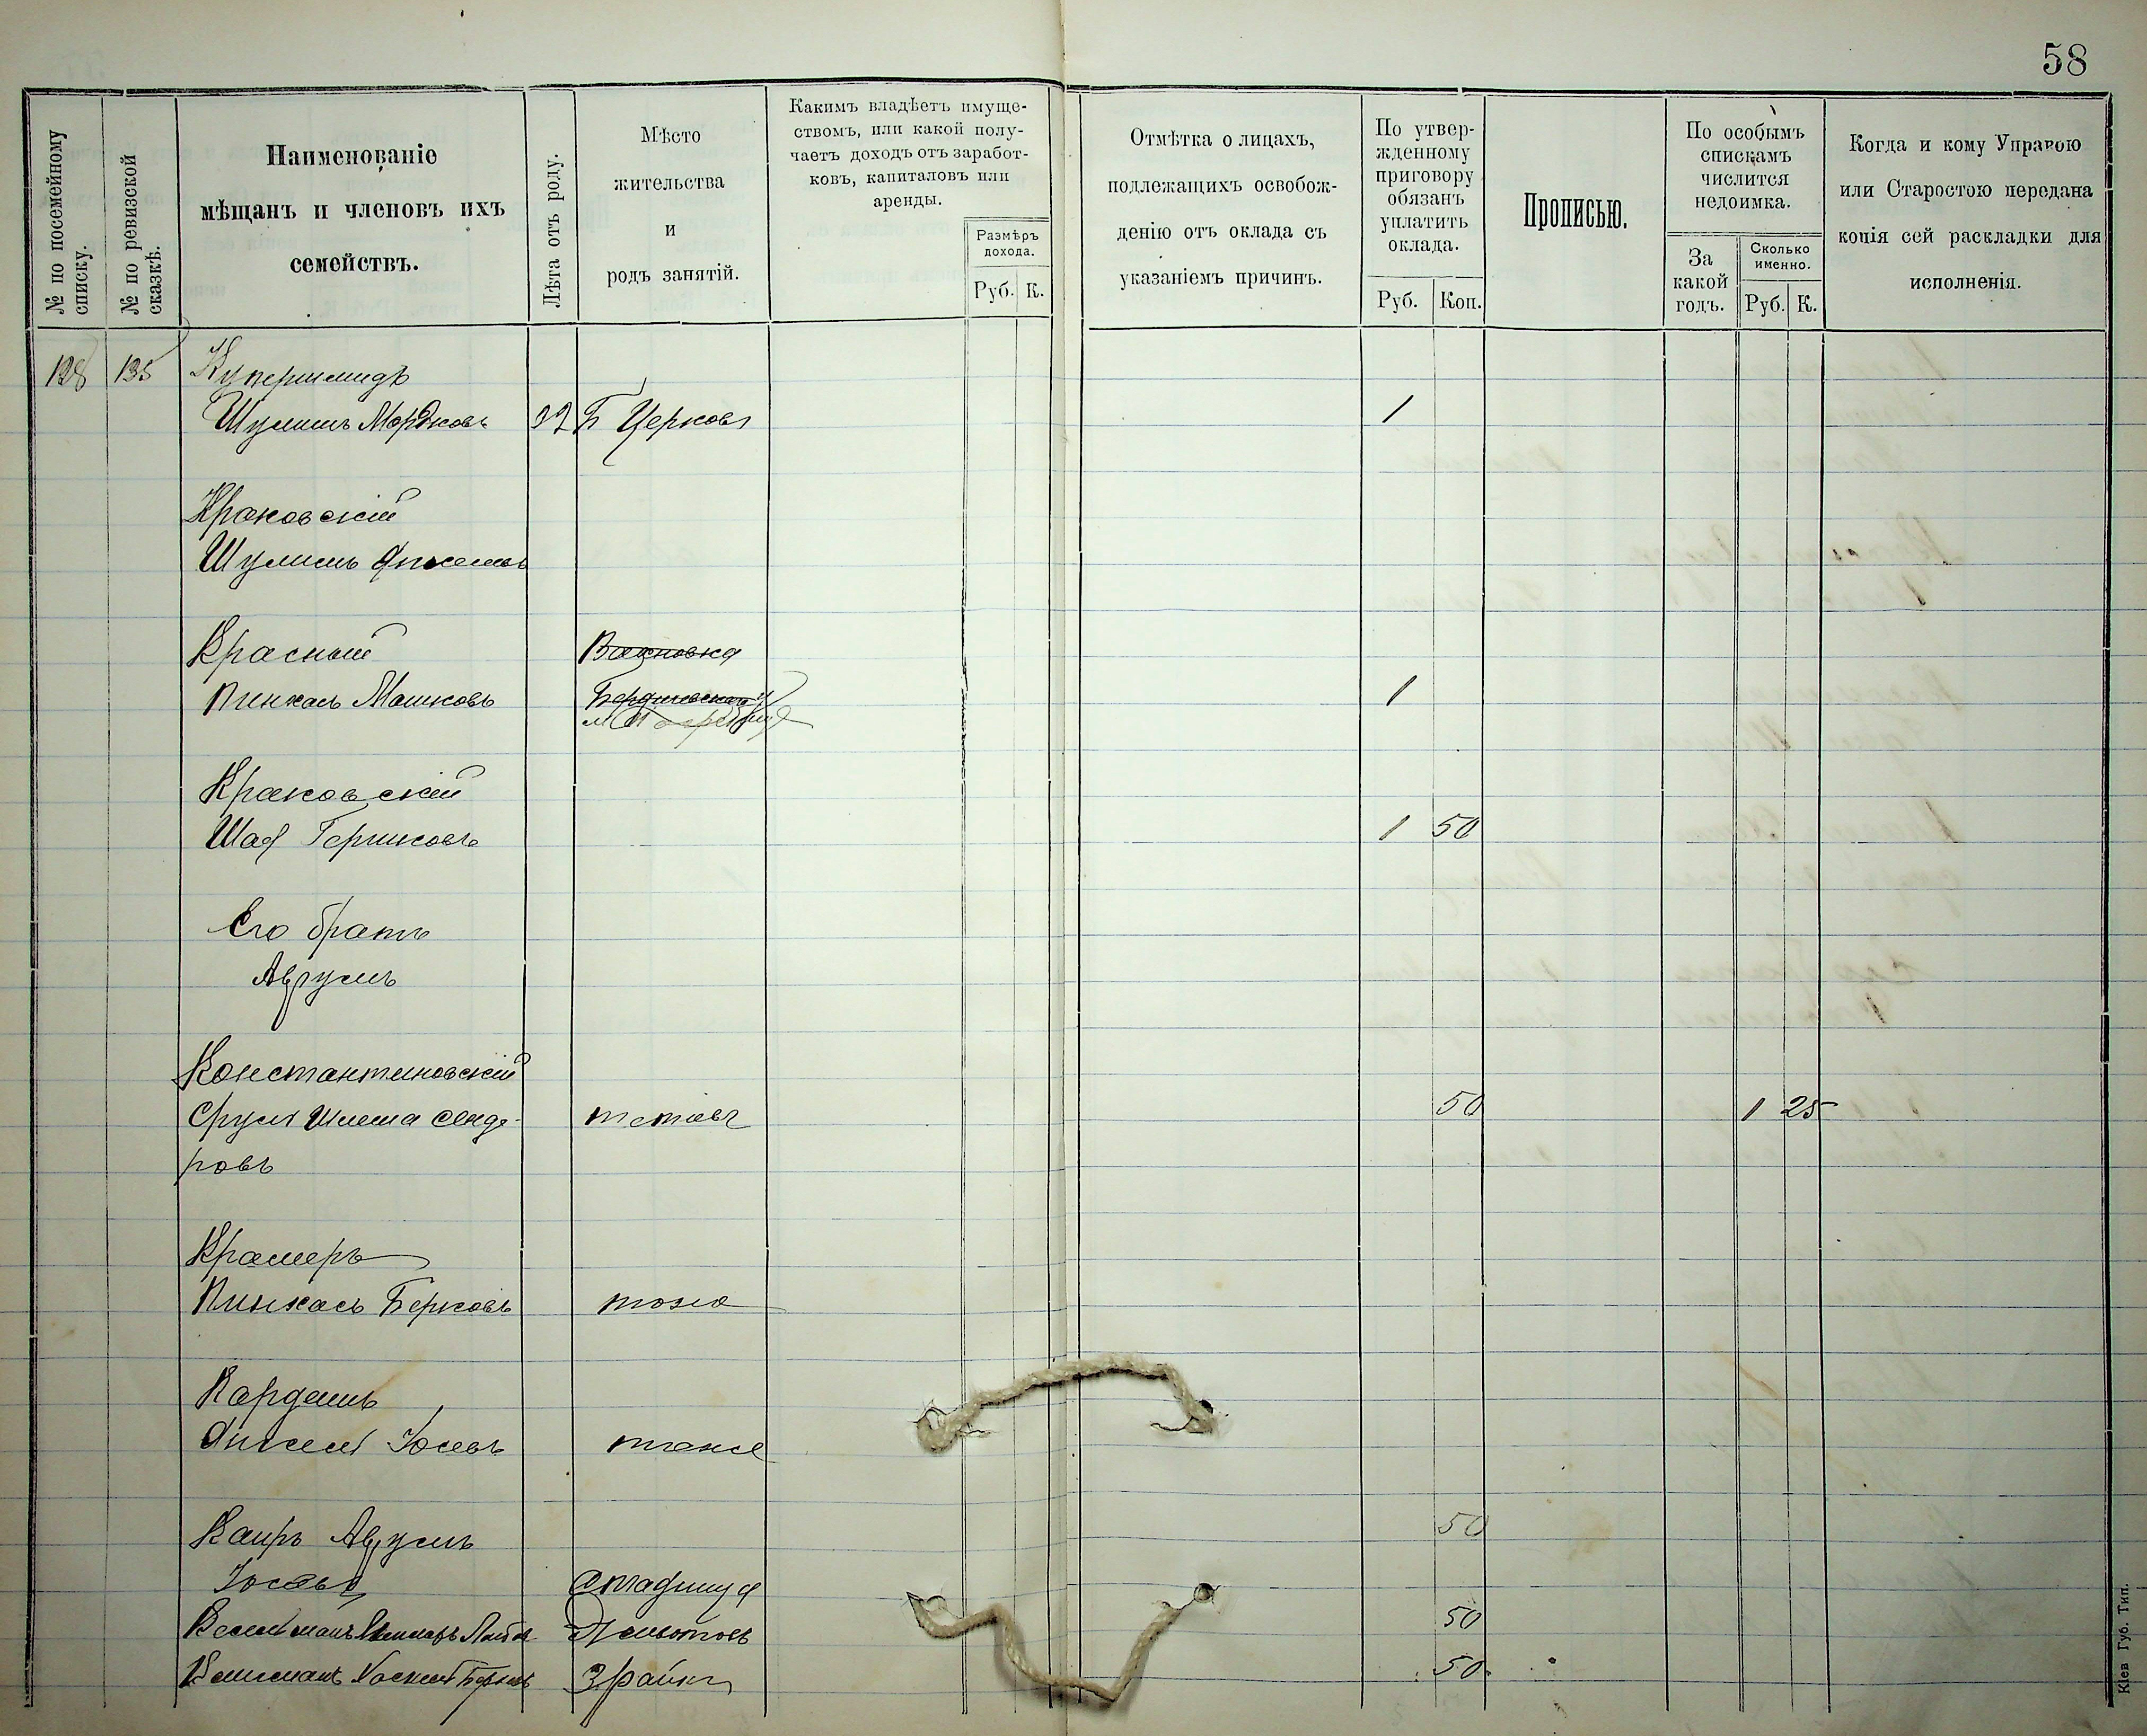 58
№ по посемейному списку.
№ по ревизской сказкѣ.
Наименованіе
мѣщанъ и членовъ ихъ
семействъ.
Лѣта отъ роду.
Мѣсто
жительства
и
родъ занятій.
Какимъ владѣетъ имуще-
ствомъ, или какой полу-
чаетъ доходъ отъ заработ-
ковъ, капиталовъ или
аренды.
Размѣръ
дохода.
Руб. К.
Отмѣтка о лицахъ,
подлежащихъ освобож-
денію отъ оклада съ
указаніемъ причинъ.
По утвер-
жденному
приговору
обязанъ
уплатить
оклада.
Руб. Коп.
Прописью.
По особымъ
спискамъ
числится
недоимка.
За
какой
годъ.
Сколько
именно.
Руб. К.
Когда и кому Управою
или Старостою передана
копія сей раскладки для
исполненія.
128 135 Купершмидъ
Шулимъ Мордковъ 32 Б Церковь 1
Краковскій
Шулимъ
Красный Вахновка
Пинхасъ Мошковъ 1
Краковскій
Шая Гершковъ 1 50
Его братъ
Аврумъ
Константиновскій
Сруль Шлема Сенде- 50 1 25
ровъ
Крамеръ
Пинхасъ Берковъ тоже
Кардашъ
Юсевъ тоже
Каиръ Аврумъ 50
Ставище
50
Хаскель 50
Кіев Губ. Тип.